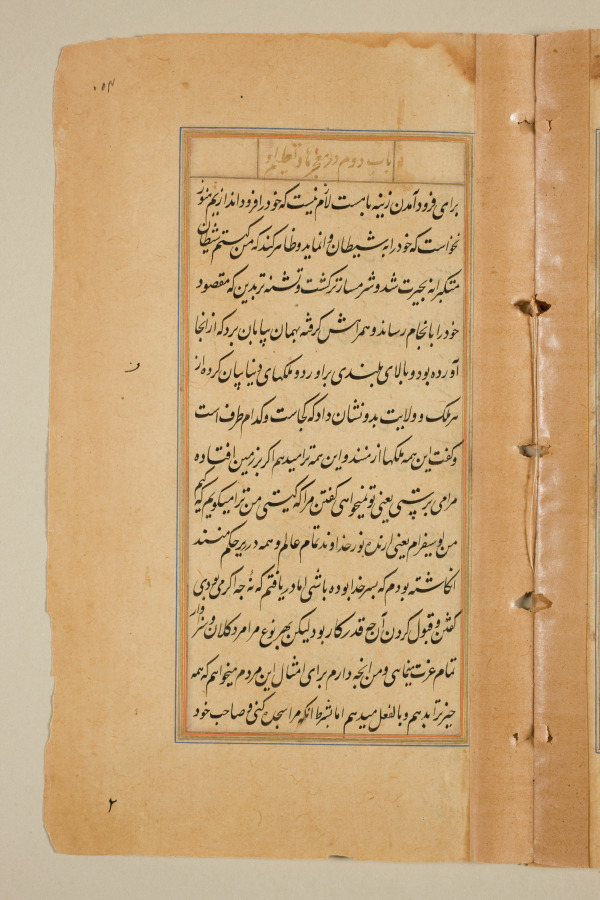 باب دوم در معجزها و تعلیم او
برای فرود آمدن زینه باهست لازم نیست که خود را فرود اندازیم هنوز
نخواست که خود را به شیطان وانماید و ظاهر کند که من کیستم شیطان
متکبرانه بحیرت شد و شرمسار ترکشت و تشنه تر بدین که مقصود
خود را بانجام رساند و همراهش گرفته بهمان بیابان برد که از انجا
آورده بود و بالای بلندی براورد و ملکهای دنیا بیان کرده از
هر ملک و ولایت بدو نشان داد که کجاست و کدام طرف است
و گفت این همه ملکها از منند و این همه ترا میدهم اکر بر زمین افتاده
مرا می پرستی یعنی تو نمیخواهی گفتن مرا که کیستی من ترا میکویم که کیم
من لوسیفرام یعنی ارنده نور خداوند تمام عالم و همه در زیر حکم منند
انکاشته بودم که پسر خدا بوده باشی اما دریافتم که نه چه اکر می بودی
گفتن و قبول کردن آن چه قدر کار بود لیکن بهر نوع مرا مرد کلان و سزاوار
تمام عزت مینمایی و من انچه دارم برای امثال این مردم میخواهم که همه
چیز ترا بدهم و بالفعل میدهم اما بشرط انکه مرا سجده کنی و صاحب خود
۲